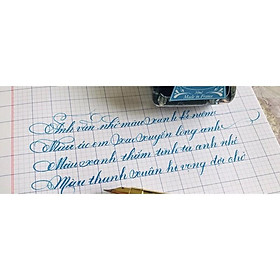 Made in France
Anh vẫn nhớ màu xanh kỉ niệm
Màu áo em xao xuyến lòng anh
Màu xanh thắm tình ta anh nhé
Màu thanh xuân hi vọng đợi chờ